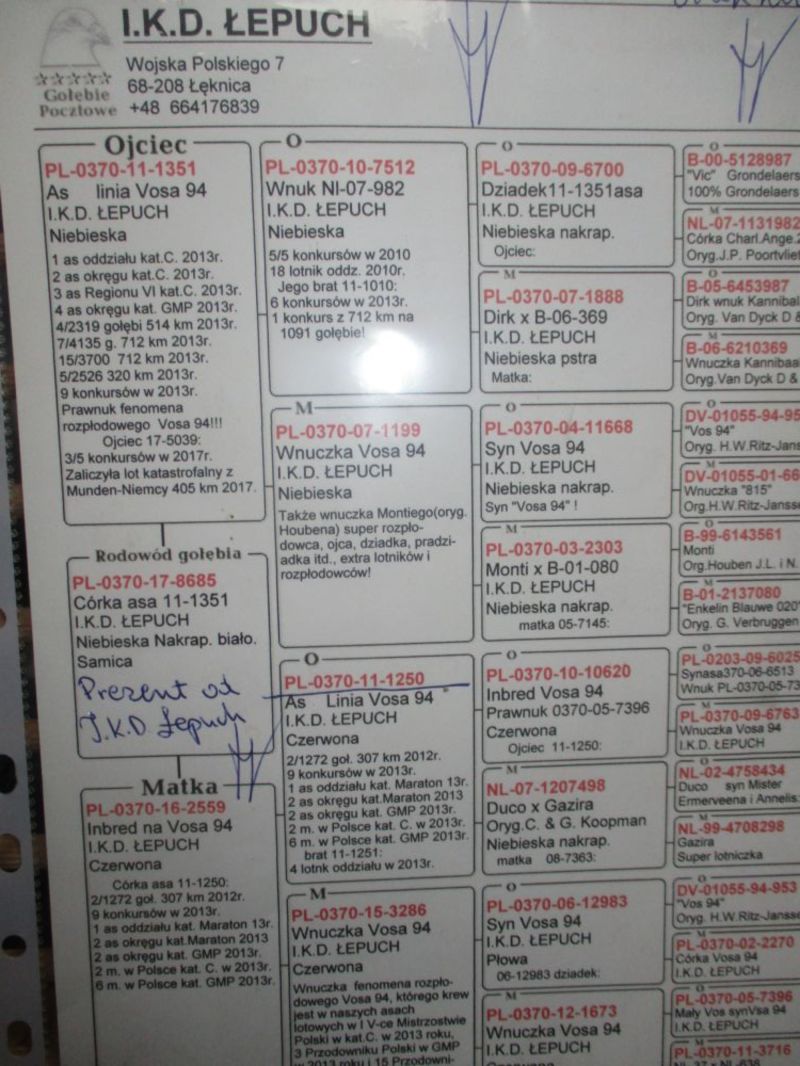 I.K.D. ŁEPUCH
Wojska Polskiego 7
68-208 Łęknica
+48 664176839
Gołębie
Pocztowe
Ojciec
PL-0370-11-1351
As linia Vosa 94
I.K.D. ŁEPUCH
Niebieska
1 as oddziału kat.C. 2013r.
2 as okręgu kat.C. 2013r.
3 as Regionu VI kat.C. 2013r.
4 as okręgu kat. GMP 2013r.
4/2319 gołębi 514 km 2013r.
7/4135 g. 712 km 2013r.
15/3700 712 km 2013r.
5/2526 320 km 2013r.
9 konkursów w 2013r.
Prawnuk fenomena
rozpłodowego Vosa 94!!!
Ojciec 17-5039:
3/5 konkursów w 2017r.
Zaliczyła lot katastrofalny z
Munden-Niemcy 405 km 2017.
Rodowód gołębia
PL-0370-17-8685
Córka asa 11-1351
I.K.D. ŁEPUCH
Niebieska Nakrap. biało.
Samica
Prezent od
I.K.D Łepuch
Matka
PL-0370-16-2559
Inbred na Vosa 94
I.K.D. ŁEPUCH
Czerwona
Córka asa 11-1250:
2/1272 goł. 307 km 2012r.
9 konkursów w 2013r.
1 as oddziału kat. Maraton 13r.
2 as okręgu kat.Maraton 2013
2 as okręgu kat. GMP 2013r.
2 m. w Polsce kat. C. w 2013r.
6 m. w Polsce kat. GMP 2013r.
O
PL-0370-10-7512
Wnuk Nl-07-982
I.K.D. ŁEPUCH
Niebieska
5/5 konkursów w 2010
18 lotnik oddz. 2010r.
Jego brat 11-1010:
6 konkursów w 2013r.
1 konkurs z 712 km na
1091 gołębie!
M
PL-0370-07-1199
Wnuczka Vosa 94
I.K.D. ŁEPUCH
Niebieska
Także wnuczka Montiego(oryg.
Houbena) super rozpło-
dowca, ojca, dziadka, pradzi-
adka itd., extra lotników i
rozpłodowców!
O
PL-0370-11-1250
As Linia Vosa 94
I.K.D. ŁEPUCH
Czerwona
2/1272 goł. 307 km 2012r.
9 konkursów w 2013r.
1 as oddziału kat. Maraton 13r.
2 as okręgu kat.Maraton 2013
2 as okręgu kat. GMP 2013r.
2 m. w Polsce kat. C. w 2013r.
6 m. w Polsce kat. GMP 2013r.
brat 11-1251:
4 lotnk oddziału w 2013r.
M
PL-0370-15-3286
Wnuczka Vosa 94
I.K.D. ŁEPUCH
Czerwona
Wnuczka fenomena rozpło-
dowego Vosa 94, którego krew
jest w naszych asach
lotowych w I V-ce Mistrzostwie
Polski w kat.C w 2013 roku,
3 Przodowniku Polski w GMP
w 2013 roku i 15 Przodowni-
O
PL-0370-09-6700
Dziadek11-1351asa
I.K.D. ŁEPUCH
Niebieska nakrap.
Ojciec:
M
PL-0370-07-1888
Dirk x B-06-369
I.K.D. ŁEPUCH
Niebieska pstra
Matka:
O
PL-0370-04-11668
Syn Vosa 94
I.K.D. ŁEPUCH
Niebieska nakrap.
Syn "Vosa 94" !
M
PL-0370-03-2303
Monti x B-01-080
I.K.D. ŁEPUCH
Niebieska nakrap.
matka 05-7145:
O
PL-0370-10-10620
Inbred Vosa 94
Prawnuk 0370-05-7396
Czerwona
Ojciec 11-1250:
M
NL-07-1207498
Duco x Gazira
Oryg.C. & G. Koopman
Niebieska nakrap.
matka 08-7363:
O
PL-0370-06-12983
Syn Vosa 94
I.K.D. ŁEPUCH
Płowa
06-12983 dziadek:
M
PL-0370-12-1673
Wnuczka Vosa 94
I.K.D. ŁEPUCH
Czerwona
O
B-00-5128987
"Vic" Grondelaers
100% Grondelaers
M
NL-07-1131982
Córka Charl.Ange.2
Oryg.J.P. Poortvliet
O
B-05-6453987
Dirk wnuk Kannibal
Oryg. Van Dyck D &
M
B-06-6210369
Wnuczka Kannibaa
Oryg.Van Dyck D &
O
DV-01055-94-95
"Vos 94"
Oryg. H.W.Ritz-Jans
M
DV-01055-01-66
Wnuczka "815"
Org.H.W.Ritz-Jansse
O
B-99-6143561
Monti
Org.Houben J.L. i N.
M
B-01-2137080
"Enkelin Blauwe 020"
Oryg. G. Verbruggen
O
PL-0203-09-6025
Synasa370-06-6513
Wnuk PL-0370-05-73
M
PL-0370-09-6763
Wnuczka Vosa 94
I.K.D. ŁEPUCH
O
NL-02-4758434
Duco syn Mister
Ermerveena i Annelis
M
NL-99-4708298
Gazira
Super lotniczka
O
DV-01055-94-953
"Vos 94"
Oryg. H.W.Ritz-Jansse
M
PL-0370-02-2270
Córka Vosa 94
I.K.D. ŁEPUCH
O
PL-0370-05-7396
Mały Vos synVsa 94
I.K.D. ŁEPUCH
M
PL-0370-11-3716
NL-37 x NL-638